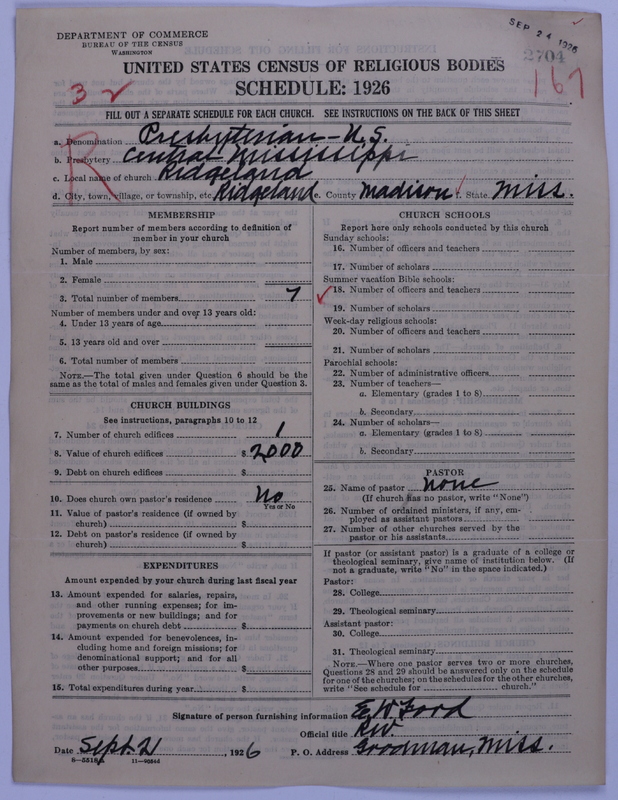 DEPARTMENT OF COMMERCE
BUREAU OF THE CENSUS
WASHINGTON
SEP 24 1926
2704
UNITED STATES CENSUS OF RELIGIOUS BODIES
SCHEDULE: 1926
3 2
167
FILL OUT A SEPARATE SCHEDULE FOR EACH CHURCH. SEE INSTRUCTIONS ON THE BACK OF THIS SHEET
R
a. Denomination Presbyterian - U.S.
b. Presbytery Central Mississippi
c. Local name of church Ridgeland
d. City, town, village, or township, etc. Ridgeland e. County Madison f. State Miss.
MEMBERSHIP
Report number of members according to definition of
member in your church
Number of members, by sex:
1. Male
2. Female
3. Total number of members 7
Number of members under and over 13 years old:
4. Under 13 years of age
5. 13 years old and over
6. Total number of members
NOTE.—The total given under Question 6 should be
same as the total of males and females given under Question 3.
CHURCH BUILDINGS
See instructions, paragraphs 10 to 12
7. Number of church edifices 1
8. Value of church edifices $ 2000
9. Debt on church edifices $
10. Does church own pastor's residence No
Yes or No
11. Value of pastor's residence (if owned by
church) $
12. Debt on pastor's residence (if owned by
church) $
EXPENDITURES
Amount expended by your church during last fiscal year
13. Amount expended for salaries, repairs,
and other running expenses; for im-
provements or new buildings; and for
payments on church debt $
14. Amount expended for benevolences, in-
cluding home and foreign missions; for
denominational support; and for all
other purposes $
15. Total expenditures during year $
CHURCH SCHOOLS
Report here only schools conducted by this church
Sunday schools:
16. Number of officers and teachers
17. Number of scholars
Summer vacation Bible schools:
18. Number of officers and teachers
19. Number of scholars
Week-day religious schools:
20. Number of officers and teachers
21. Number of scholars
Parochial schools:
22. Number of administrative officers
23. Number of teachers—
a. Elementary (grades 1 to 8)
b. Secondary
24. Number of scholars—
a. Elementary (grades 1 to 8)
b. Secondary
PASTOR
25. Name of pastor none
(If church has no pastor, write "None")
26. Number of ordained ministers, if any, em-
ployed as assistant pastors
27. Number of other churches served by the
pastor or his assistants
If pastor (or assistant pastor) is a graduate of a college or
theological seminary, give name of institution below. (If
not a graduate, write "No" in the space indicated.)
Pastor:
28. College
29. Theological seminary
Assistant pastor:
30. College
31. Theological seminary
NOTE.—Where one pastor serves two or more churches,
Questions 28 and 29 should be answered only on the schedule
for one of the churches; on the schedules for the other churches,
write "See schedule for church."
Signature of person furnishing information E. W. Ford
Official title Rev.
Date Sept. 21, 1926 P. O. Address Goodman, Miss.
11—90846